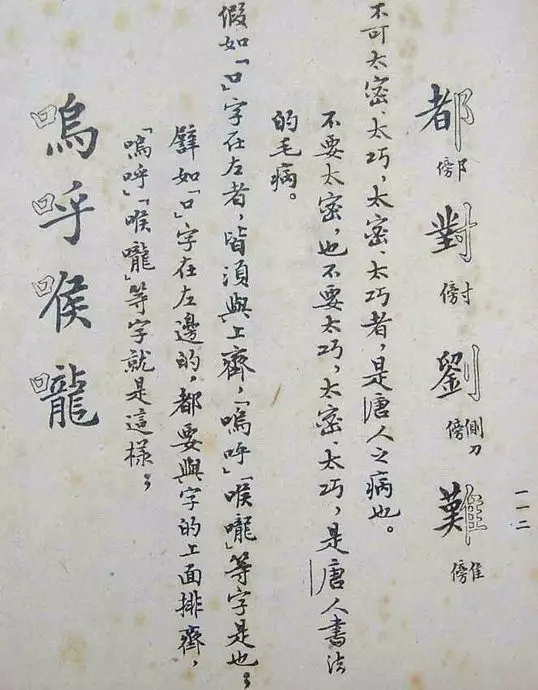 都 阝傍
對 寸傍
劉 側刀傍
難 隹傍
一一二
不可太密、太巧,太密、太巧者,是唐人之病也。
不要太密,也不要太巧,太密、太巧,是唐人書法
的毛病。
假如「口」字在左者,皆須與上齊,「嗚呼」「喉嚨」等字是也。
譬如「口」字在左邊的,都要與字的上面排齊,
「嗚呼」「喉嚨」等字就是這樣。
嗚呼喉嚨